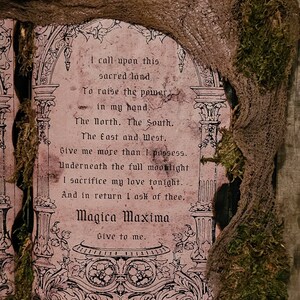 I call upon this
sacred land
To raise the power
in my hand.
The North, The South,
The East and West,
Give me more than I possess.
Underneath the full moonlight
I sacrifice my love tonight.
And in return I ask of thee,
Magica Maxima
Give to me.